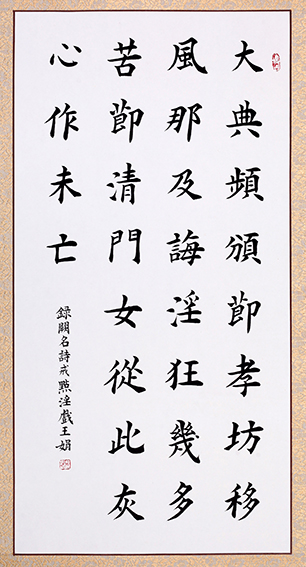 大典頻頒節孝坊移
風那及誨淫狂幾多
苦節清門女從此灰
心作未亡
録闕名詩戒點淫戲王娟